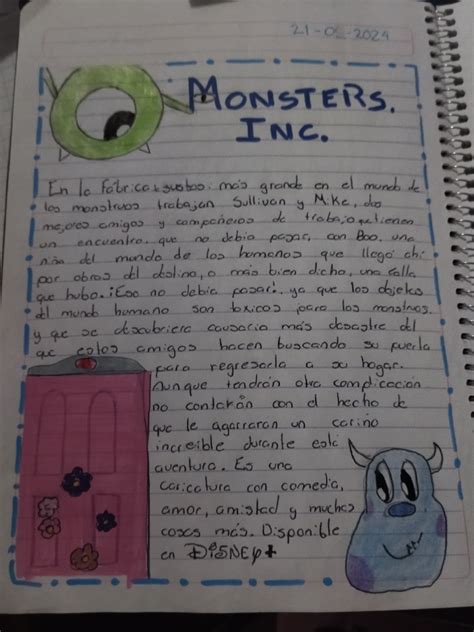 21-05-2024
MONSTERS.
INC.
En la fábrica +sustos. más grande en el mundo de
los monstruos trabajan Sullivan y Mike, dos
mejores amigos y compañeros de trabajo tienen
un encuentro. que no debia pasar, con Boo. una
niña del mundo de los humanos que llegó ahi
por obras del destino, o más bien dicho, una falla
que hubo. ¡Eso no debia pasar!. ya que los objetos
del mundo humano son toxicos para los monstruos
y que se descubriera causaria más desastre del
que estos amigos hacen buscando su puerta
para regresarla a su hogar.
Aunque tendrán otra complicación
no contarán con el hecho de
que le agarraran un cariño
increible durante está
aventura. Es una
caricatura con comedia,
amor, amistad y muchas
cosas más. Disponible
en DISNEY+